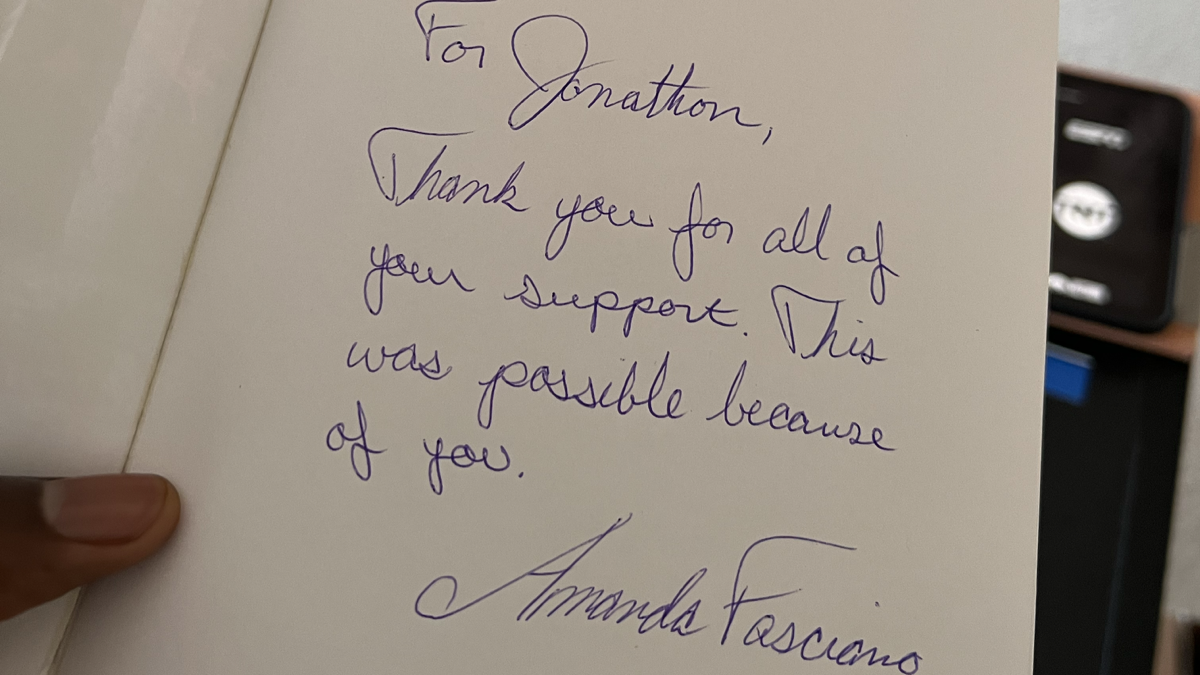 For Jonathon,
Thank you for all of
your support. This
was possible because
of you.
Amanda Fasciano
TNT